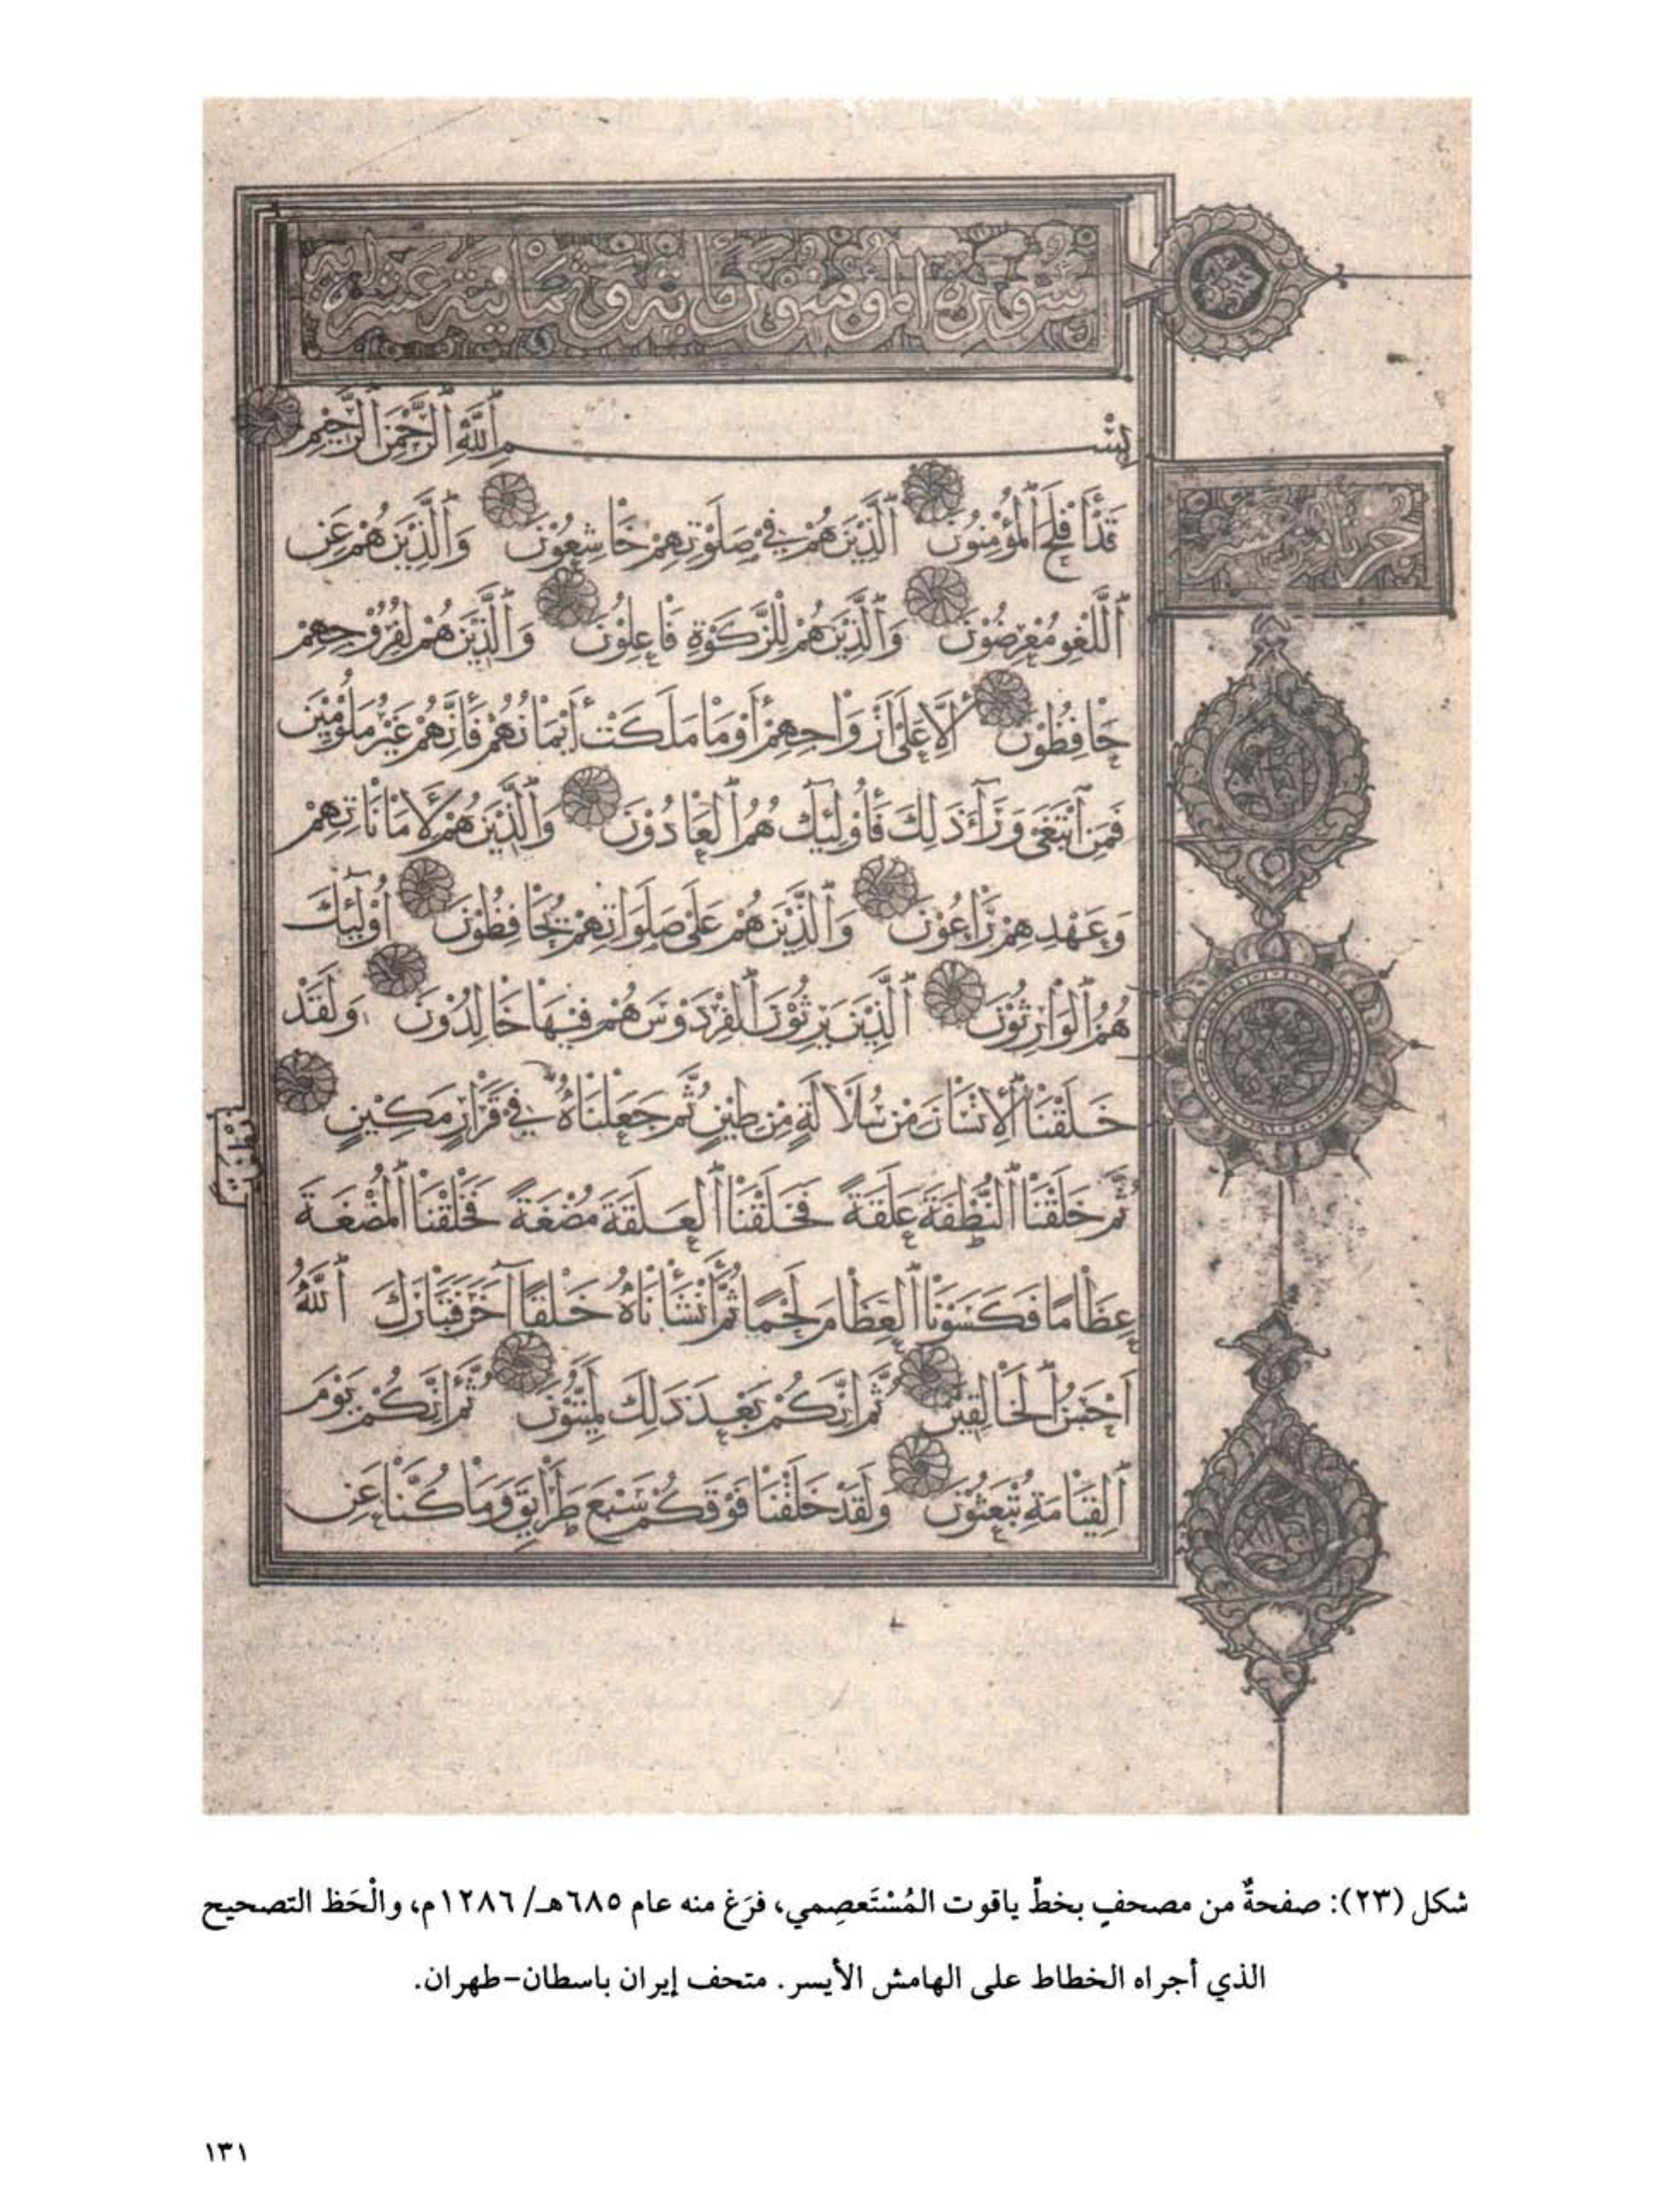 سورة المؤمنون مائة وثمانية عشر اية
بِسْمِ اللَّهِ الرَّحْمَنِ الرَّحِيمِ
قَدْ أَفْلَحَ الْمُؤْمِنُونَ الَّذِينَ هُمْ فِي صَلَوتِهِمْ خَاشِعُونَ وَالَّذِينَ هُمْ عَنِ
اللَّغْوِ مُعْرِضُونَ وَالَّذِينَ هُمْ لِلزَّكَوةِ فَاعِلُونَ وَالَّذِينَ هُمْ لِفُرُوجِهِمْ
حَافِظُونَ إِلَّا عَلَى أَزْوَاجِهِمْ أَوْ مَا مَلَكَتْ أَيْمَانُهُمْ فَإِنَّهُمْ غَيْرُ مَلُومِينَ
فَمَنِ ابْتَغَى وَرَآءَ ذَلِكَ فَأُولَئِكَ هُمُ الْعَادُونَ وَالَّذِينَ هُمْ لِأَمَانَاتِهِمْ
وَعَهْدِهِمْ رَاعُونَ وَالَّذِينَ هُمْ عَلَى صَلَوَاتِهِمْ يُحَافِظُونَ أُولَئِكَ
هُمُ الْوَارِثُونَ الَّذِينَ يَرِثُونَ الْفِرْدَوْسَ هُمْ فِيهَا خَالِدُونَ وَلَقَدْ
خَلَقْنَا الْإِنْسَانَ مِنْ سُلَالَةٍ مِنْ طِينٍ ثُمَّ جَعَلْنَاهُ فِي قَرَارٍ مَكِينٍ
نُطْفَةً
ثُمَّ خَلَقْنَا النُّطْفَةَ عَلَقَةً فَخَلَقْنَا الْعَلَقَةَ مُضْغَةً فَخَلَقْنَا الْمُضْغَةَ
عِظَامًا فَكَسَوْنَا الْعِظَامَ لَحْمًا ثُمَّ أَنْشَأْنَاهُ خَلْقًا آخَرَ فَتَبَارَكَ اللَّهُ
أَحْسَنُ الْخَالِقِينَ ثُمَّ إِنَّكُمْ بَعْدَ ذَلِكَ لَمَيِّتُونَ ثُمَّ إِنَّكُمْ يَوْمَ
الْقِيَامَةِ تُبْعَثُونَ وَلَقَدْ خَلَقْنَا فَوْقَكُمْ سَبْعَ طَرَايِقَ وَمَا كُنَّا عَنِ
شكل (٢٣): صفحةٌ من مصحفٍ بخطِّ ياقوت المُسْتَعصِمي، فرَغ منه عام ٦٨٥هـ/ ١٢٨٦م، والْحَظ التصحيح
الذي أجراه الخطاط على الهامش الأيسر. متحف إيران باسطان-طهران.
١٣١